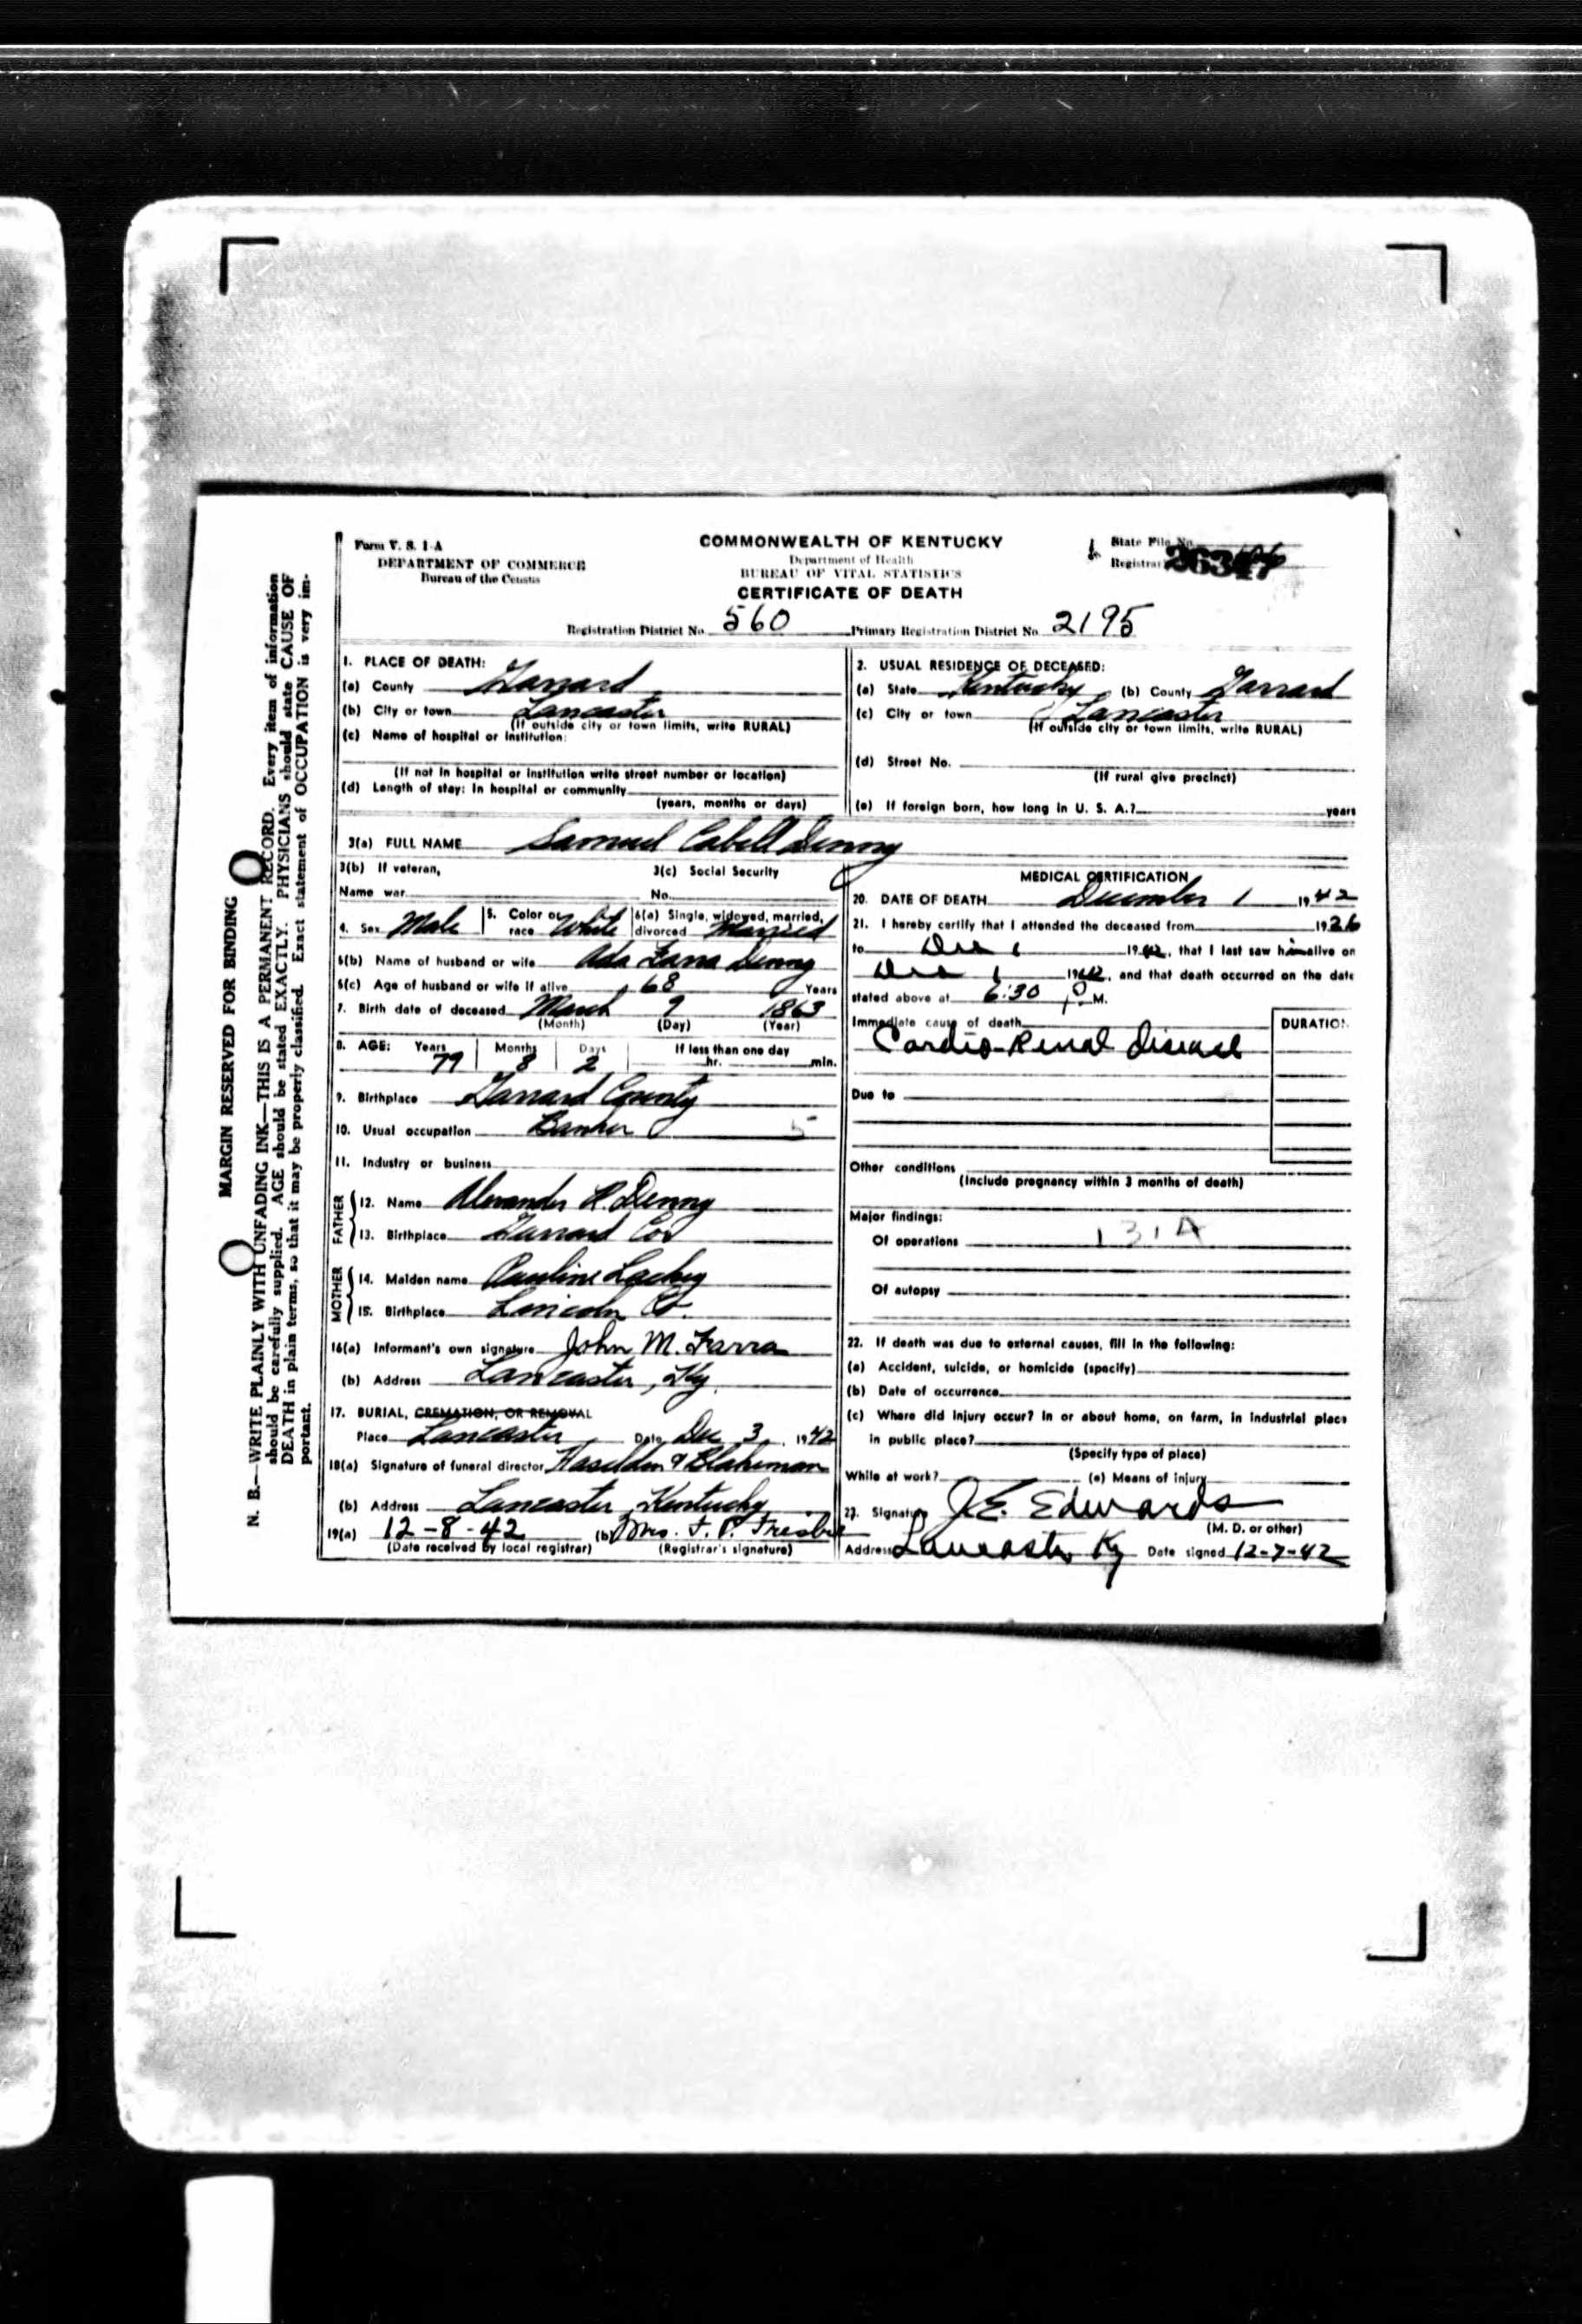 Form V. S. 1-A
DEPARTMENT OF COMMERCE
Bureau of the Census
COMMONWEALTH OF KENTUCKY
Department of Health
BUREAU OF VITAL STATISTICS
CERTIFICATE OF DEATH
State File No.
Registrar
Registration District No. 560 Primary Registration District No. 2195
MARGIN RESERVED FOR BINDING
N. B.—WRITE PLAINLY WITH UNFADING INK—THIS IS A PERMANENT RECORD. Every item of information
should be carefully supplied. AGE should be stated EXACTLY. PHYSICIANS should state CAUSE OF
DEATH in plain terms, so that it may be properly classified. Exact statement of OCCUPATION is very im-
portant.
1. PLACE OF DEATH:
(a) County Garrard
(b) City or town Lancaster
(If outside city or town limits, write RURAL)
(c) Name of hospital or institution:
(If not in hospital or institution write street number or location)
(d) Length of stay: In hospital or community
(years, months or days)
2. USUAL RESIDENCE OF DECEASED:
(a) State Kentucky (b) County Garrard
(c) City or town Lancaster
(If outside city or town limits, write RURAL)
(d) Street No.
(If rural give precinct)
(e) If foreign born, how long in U. S. A.? years
3(a) FULL NAME Samuel Cabell Denny
3(b) If veteran, 3(c) Social Security
Name war No.
4. Sex Male 5. Color or race White 6(a) Single, widowed, married, divorced Married
6(b) Name of husband or wife Ada Farra Denny
6(c) Age of husband or wife if alive 68 Years
7. Birth date of deceased March 9 1863
(Month) (Day) (Year)
8. AGE: Years 79 Months 8 Days 2 If less than one day hr. min.
9. Birthplace Garrard County
10. Usual occupation Banker 5
11. Industry or business
FATHER
12. Name Alexander R. Denny
13. Birthplace Garrard Co
MOTHER
14. Maiden name Pauline Lackey
15. Birthplace Lincoln Co.
16(a) Informant's own signature John M. Farra
(b) Address Lancaster, Ky.
17. BURIAL, CREMATION, OR REMOVAL
Place Lancaster Date Dec 3, 1942
18(a) Signature of funeral director Haselden & Blakeman
(b) Address Lancaster, Kentucky
19(a) 12-8-42 (b) Mrs. F. P. Frisbie
(Date received by local registrar) (Registrar's signature)
MEDICAL CERTIFICATION
20. DATE OF DEATH December 1 1942
21. I hereby certify that I attended the deceased from 1926
to Dec 1 1942, that I last saw him alive on
Dec 1 1942, and that death occurred on the date
stated above at 6:30 P. M.
Immediate cause of death DURATION
Cardio-Renal Disease
Due to
Other conditions
(Include pregnancy within 3 months of death)
Major findings:
Of operations 131A
Of autopsy
22. If death was due to external causes, fill in the following:
(a) Accident, suicide, or homicide (specify)
(b) Date of occurrence
(c) Where did injury occur? In or about home, on farm, in industrial place
in public place?
(Specify type of place)
While at work? (e) Means of injury
23. Signature J. E. Edwards
(M. D. or other)
Address Lancaster Ky Date signed 12-7-42